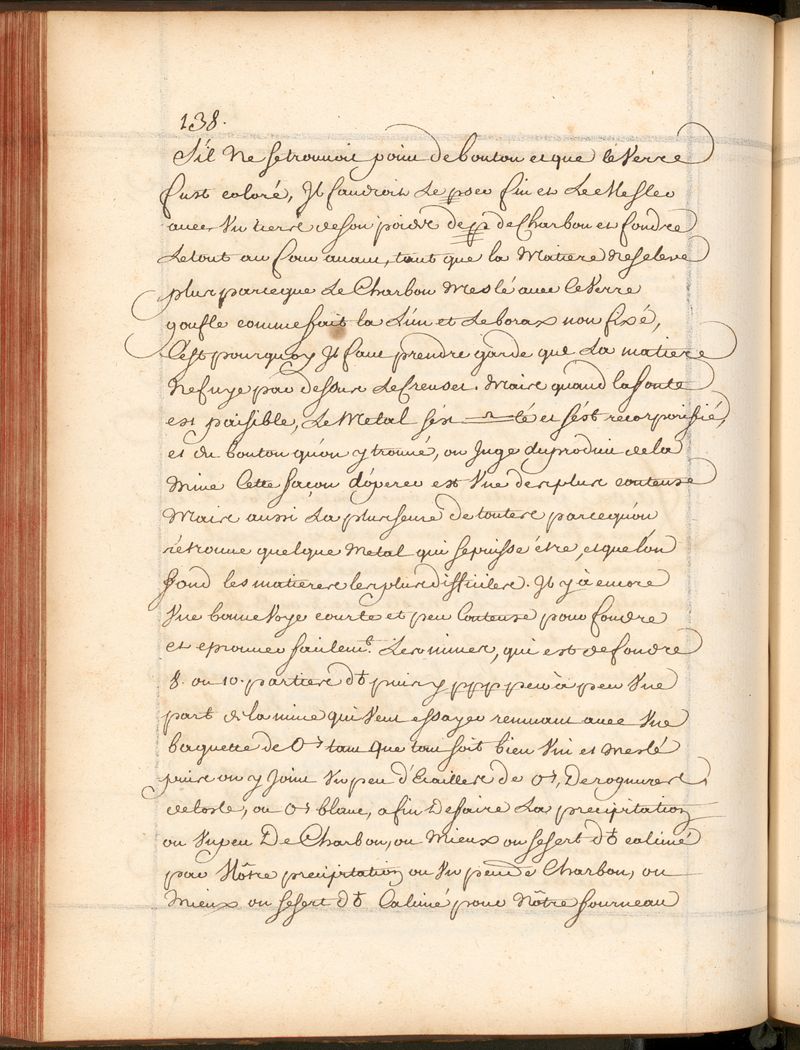 138.
S'il Ne setrouuoit point de bouton et que le Verre
fust coloré, Il faudroit Le fin et Le Mesler
auec Vn tiers de son poids de de Charbon et fondre
Le tout au four auant, tant que la Matiere Ne seleve
plus parceque Le Charbon Meslé auec le Verre
goufle comme fait la L'un et Le borax non fixé,
C'est pourquoy Il faut prendre garde que La matiere
Ne fuye par dessus Le Creuset. Mais quand la fonte
est paisible, Le Metal s'est et s'est recorporifié,
et du bouton qu'on y trouue, on Juge du produit de la
Mine Cette façon d'operer est Vne des plus couteuse
Mais aussi La plus seure de toutes parcequ'on
retrouue quelque Metal qui sepuisse être, et que l'on
fond les matieres les plus difficiles. Il y à encore
Vne bonne Voye courte et peu Couteuse pour fondre
et eprouuer Les mines, qui est de fondre
8. ou 10. parties d♄ puis y ppp peu à peu Vne
part de la mine qu'Veut essayer remuant auec Vne
baguette de tant que tout soit bien Vni et Meslé
puis on y Joint Vn peu d'Ecailles de Derognures
de tole, ou blanc, afin De faire La precipitation
ou Vn peu De Charbon, ou Mieux on se sert d♄ calciné
pour Nôtre precipitation ou Vn peu de Charbon, ou
Mieux on se sert d♄ Calciné pour Nôtre fourneau